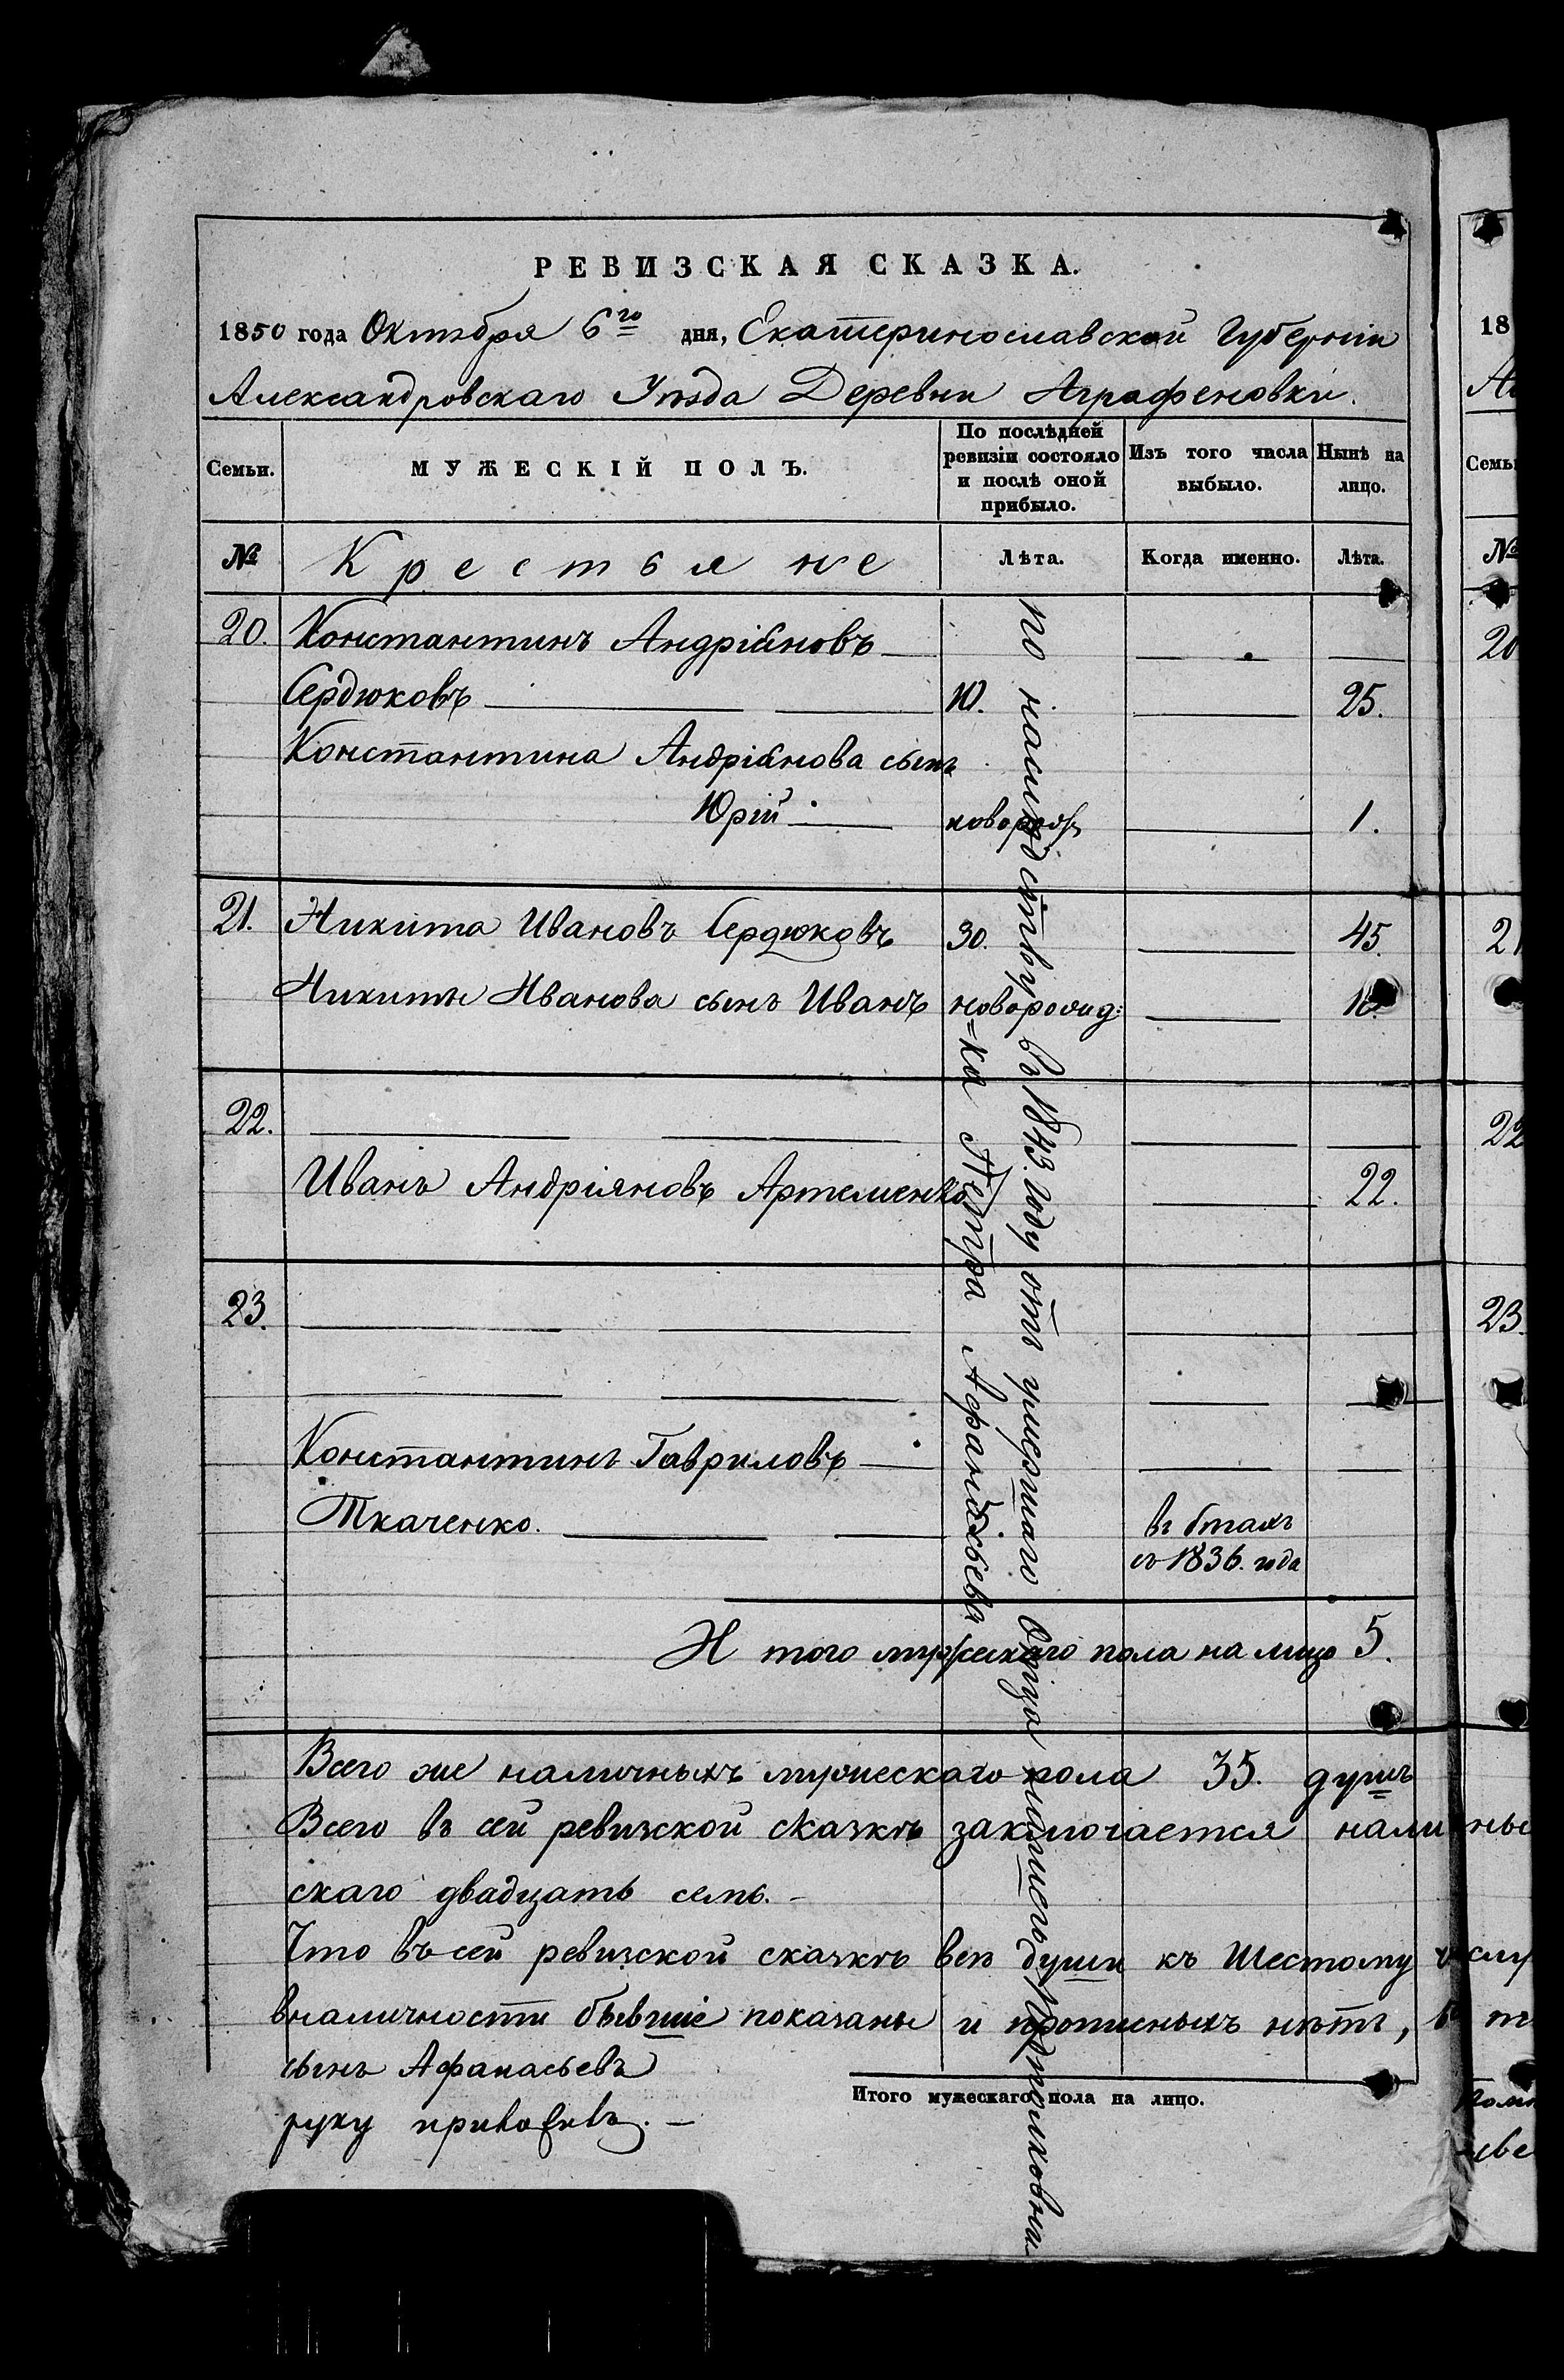 РЕВИЗСКАЯ СКАЗКА.
1850 года Октября 6го дня, Екатеринославской Губерніи
Александровскаго Уѣзда Деревни Аграфеновки.
Семьи. МУЖЕСКІЙ ПОЛЪ. По послѣдней ревизіи состояло и послѣ оной прибыло. Изъ того числа выбыло. Нынѣ на лицо.
№ Крестьяне Лѣта. Когда именно. Лѣта.
20. Константинъ Андріяновъ
Сердюковъ 10. 25.
Константина Андріянова сынъ
Юрій новорож 1.
21. Никита Ивановъ Сердюковъ 30. 45.
Никиты Иванова сынъ Иванъ новорожд: 10.
22.
Иванъ Андріяновъ Артеменко 22.
23.
Константинъ Гавриловъ
Ткаченко. въ бѣгахъ
съ 1836. года
И того мужескаго пола на лицо 5.
Всего же наличныхъ мужескаго пола 35. душъ
Всего въ сей ревизской сказкѣ заключается налич ны
скаго двадцать семь.
Что въ сей ревизской сказкѣ всѣ души къ Шестому числу
вналичности бывшіе показаны и прописныхъ нѣтъ,
сынъ Афанасьевъ
руку приложилъ.
Итого мужескаго пола на лицо.
по наслѣдству въ 1843. году отъ умершаго Отца нашего
=ка Петра Афанасьева
18
Семь
№
20
21
22
23.